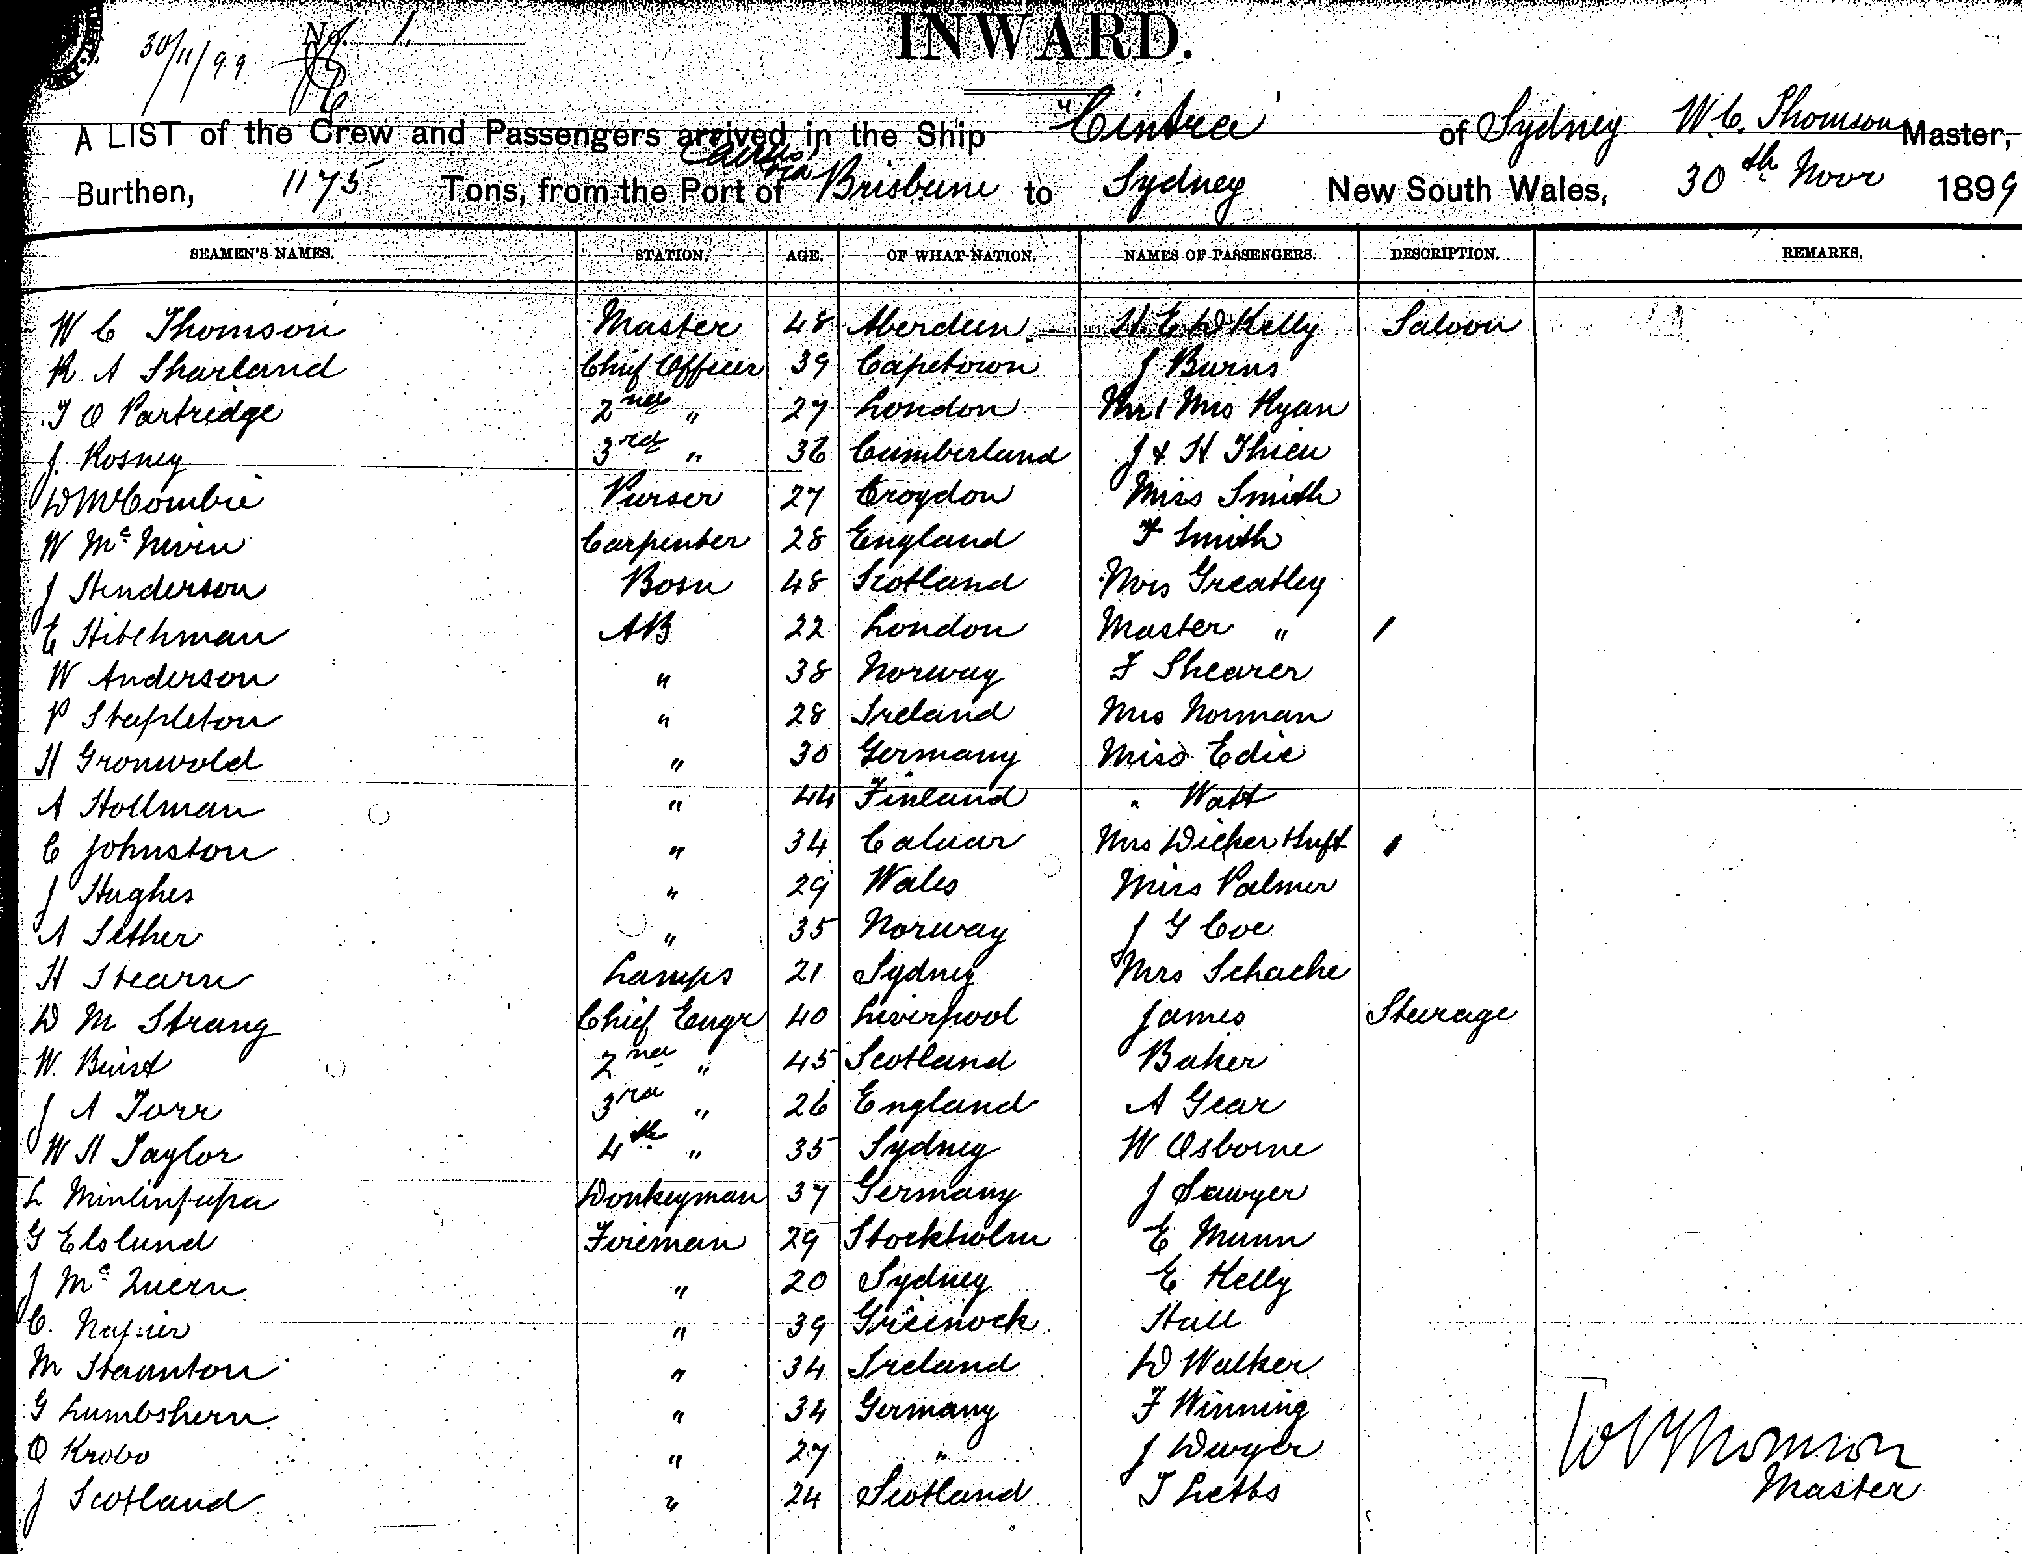 30/11/99 No. 1.
INWARD.
A LIST of the Crew and Passengers arrived in the Ship "Cintra" of Sydney W. C. Thomson Master,
Burthen, 1175 Tons, from the Port of Cairns via Brisbane to Sydney New South Wales, 30th Novr 1899
SEAMEN'S NAMES. STATION. AGE. OF WHAT NATION. NAMES OF PASSENGERS. DESCRIPTION. REMARKS.
W C Thomson Master 48 Aberdeen H. E. W Kelly Saloon
R A Sharland Chief Officer 39 Capetown J Burns
T O Partridge 2nd " 27 London Mr & Mrs Ryan
J. Rosney 3rd " 36 Cumberland J & H Thieu
D McCombie Purser 27 Croydon Miss Smith
W Mc Nivin Carpenter 28 England F Smith
J Henderson Bosn 48 Scotland Mrs Greatley
E Hitchman AB 22 London Master "
W Anderson " 38 Norway F Shearer
P Stapleton " 28 Ireland Mrs Norman
H Gronwold " 30 Germany Miss Edie
A Hollman " 44 Finland " Watt
C Johnston " 34 Mrs
J Hughes " 29 Wales Miss Palmer
A Sether " 35 Norway J G Coe
H Stearn Lamps 21 Sydney Mrs Schache
D M Strang Chief Engr 40 Liverpool James Steerage
W. Buist 2nd " 45 Scotland Baker
J A Torr 3rd " 26 England A Gear
W H Taylor 4th " 35 Sydney W Osborne
L Donkeyman 37 Germany J Sawyer
G Elslund Fireman 29 Stockholm E Munn
J Mc Quern " 20 Sydney E Kelly
C. Napier " 39 Greenock Hall
M Staunton " 34 Ireland D Walker
G Lumbshern " 34 Germany F Winning
O Krobo " 27 " J Dwyer
J Scotland " 24 Scotland T Letbs
W C Thomson
Master